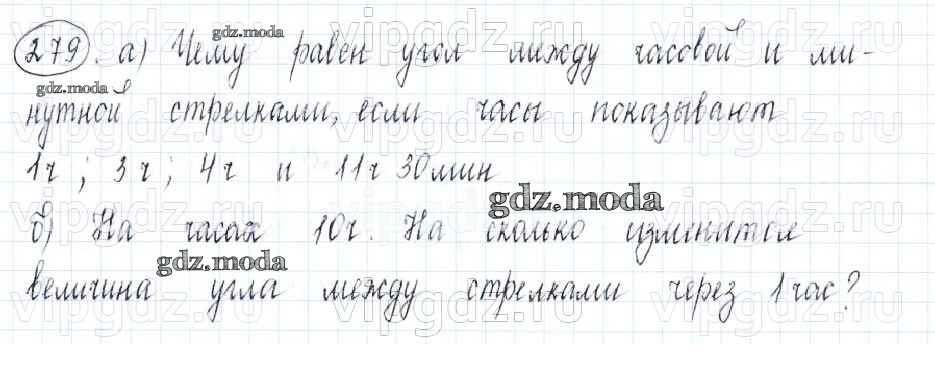 279. а) Чему равен угол между часовой и ми-
нутной стрелками, если часы показывают
1ч ; 3ч ; 4ч и 11ч 30мин
б) На часах 10ч. На сколько изменится
величина угла между стрелками через 1 час?
gdz.moda
gdz.moda
gdz.moda
gdz.moda
vipgdz.ru